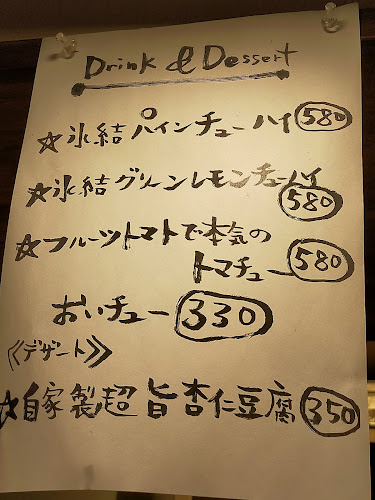 Drink & Dessert
☆氷結パインチューハイ 580
☆氷結グリーンレモンチューハイ
580
☆フルーツトマトで本気の
トマチュー 580
おいチュー 330
《デザート》
☆自家製超旨杏仁豆腐 350